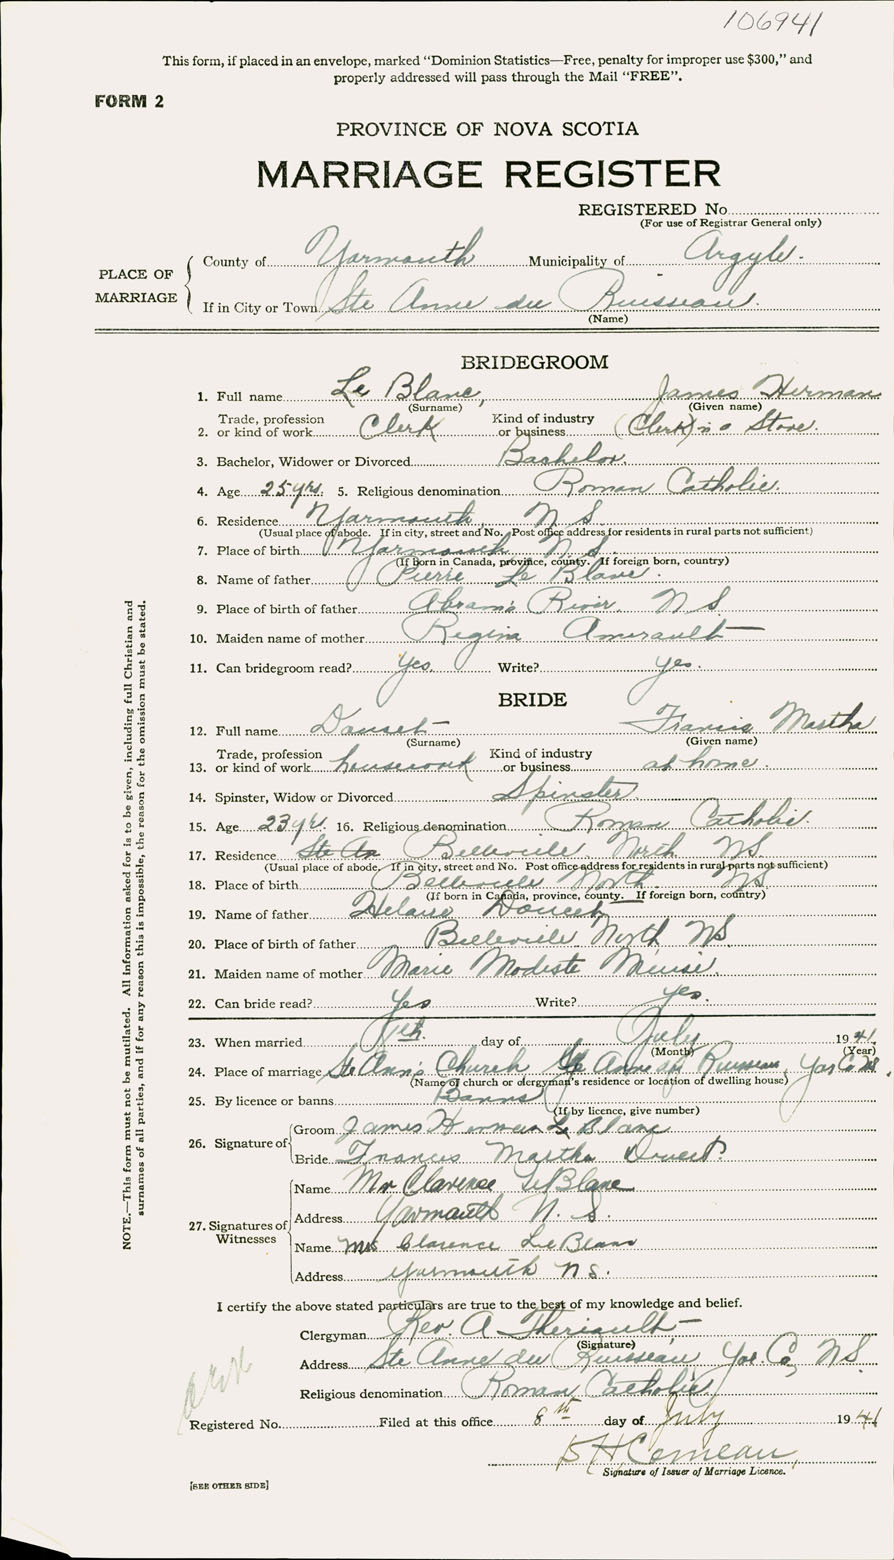 106941
This form, if placed in an envelope, marked "Dominion Statistics—Free, penalty for improper use $300," and
properly addressed will pass through the Mail "FREE".
FORM 2
PROVINCE OF NOVA SCOTIA
MARRIAGE REGISTER
REGISTERED No.
(For use of Registrar General only)
PLACE OF MARRIAGE
County of Yarmouth Municipality of Argyle.
If in City or Town Ste Anne du Ruisseau.
(Name)
BRIDEGROOM
1. Full name Le Blanc, James Herman
(Surname) (Given name)
2. Trade, profession or kind of work Clerk Kind of industry or business (Clerk) in a Store.
3. Bachelor, Widower or Divorced Bachelor.
4. Age 25 yrs. 5. Religious denomination Roman Catholic.
6. Residence Yarmouth, N S
(Usual place of abode. If in city, street and No. Post office address for residents in rural parts not sufficient)
7. Place of birth Yarmouth N. S.
(If born in Canada, province, county. If foreign born, country)
8. Name of father Pierre Le Blanc.
9. Place of birth of father Abram's River. N S
10. Maiden name of mother Regina Amirault
11. Can bridegroom read? Yes. Write? yes.
BRIDE
12. Full name Doucet Francis Martha
(Surname) (Given name)
13. Trade, profession or kind of work housework Kind of industry or business at home.
14. Spinster, Widow or Divorced Spinster.
15. Age 23 yr. 16. Religious denomination Roman Catholic.
17. Residence Ste An Belleville North NS.
(Usual place of abode. If in city, street and No. Post office address for residents in rural parts not sufficient)
18. Place of birth Belleville North. NS.
(If born in Canada, province, county. If foreign born, country)
19. Name of father Doucet
20. Place of birth of father Belleville North NS
21. Maiden name of mother Marie Modeste Meuse.
22. Can bride read? Yes Write? yes.
23. When married day of July 1941.
(Month) (Year)
24. Place of marriage Ste Ann's Church Ste Anne du Ruisseau, Yar Co NS.
(Name of church or clergyman's residence or location of dwelling house)
25. By licence or banns Banns
(If by licence, give number)
26. Signature of
Groom James Herman Le Blanc
Bride Frances Martha Doucet.
27. Signatures of Witnesses
Name Mr Clarence LeBlanc
Address Yarmouth N. S.
Name Mrs Clarence LeBlanc
Address Yarmouth N S.
I certify the above stated particulars are true to the best of my knowledge and belief.
Clergyman Rev. A Theriault
(Signature)
Address Ste Anne du Ruisseau Yar. Co, NS
Religious denomination Roman Catholic
Registered No. Filed at this office 8th day of July 1941
B H Comeau
Signature of Issuer of Marriage Licence.
[SEE OTHER SIDE]
NOTE.—This form must not be mutilated. All Information asked for is to be given, including full Christian and
surnames of all parties, and if for any reason this is impossible, the reason for the omission must be stated.